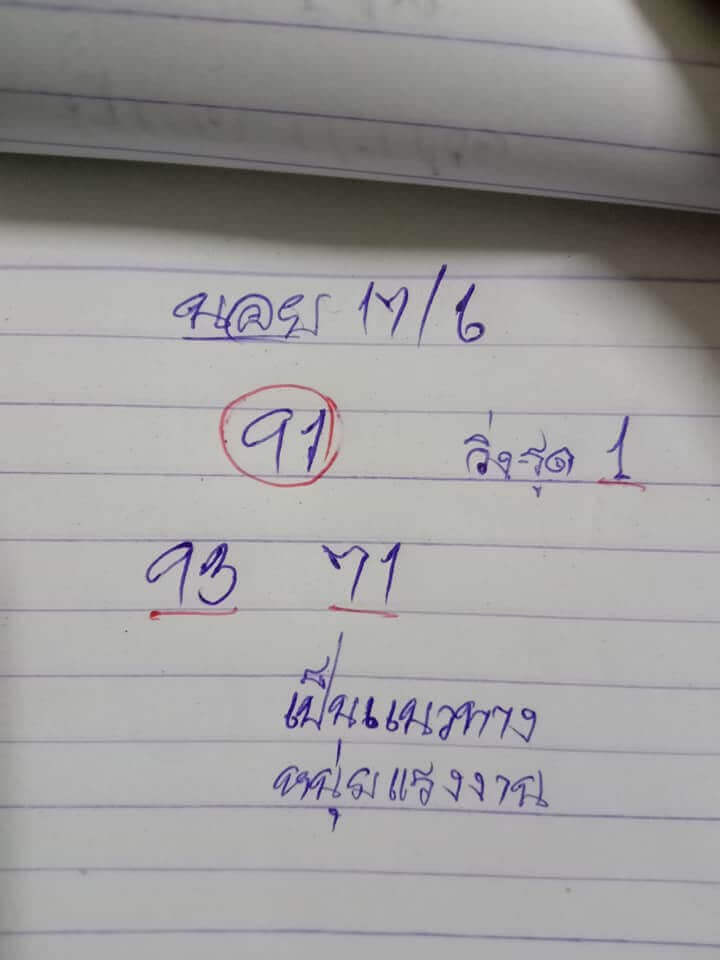 นอย 17/6
91 วิ่ง-รูด 1
93 71
เป็นแนวทาง
หนุ่มแรงงาน